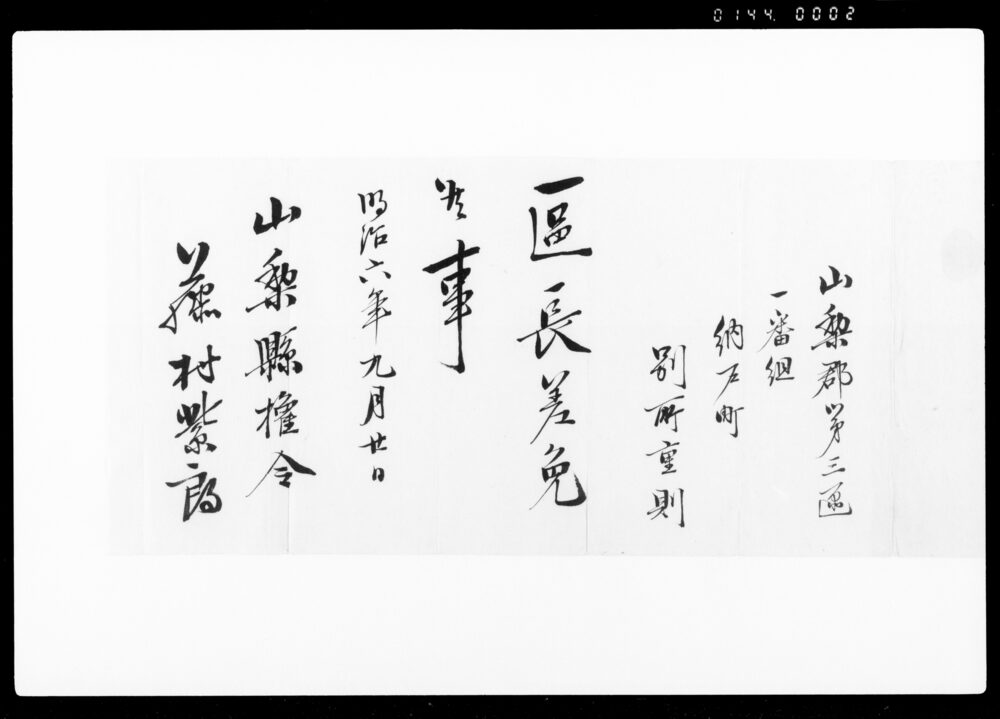 0144. 0002
山梨郡第三區
一番組
納戸町
別所重則
區長差免
候事
明治六年九月廿日
山梨縣權令
藤村紫朗